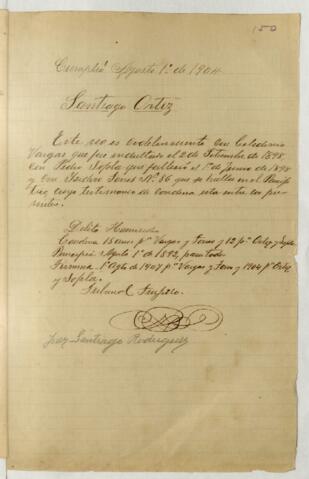 150
Cumplió Agosto 1º de 1904
Santiago Ortiz
Este reo es codelincuente con Celedonio
Vargas que fue indultado el 2 de Setiembre de 1898
con Pedro que falleció el 1º de Junio de 1898
y con Isidro Nº 56 que se halla en el
cuyo testimonio de condena esta entre los pre
sentes.
Delito Homicidio
Condena 15 años pª Vargas y y 12 pª Ortiz y
Principió Agosto 1º de 1892, para todos
Termina 1º Agto de 1907 pª Vargas y y 1904 pª Ortiz
y
Tribunal
Juez Santiago Rodriguez